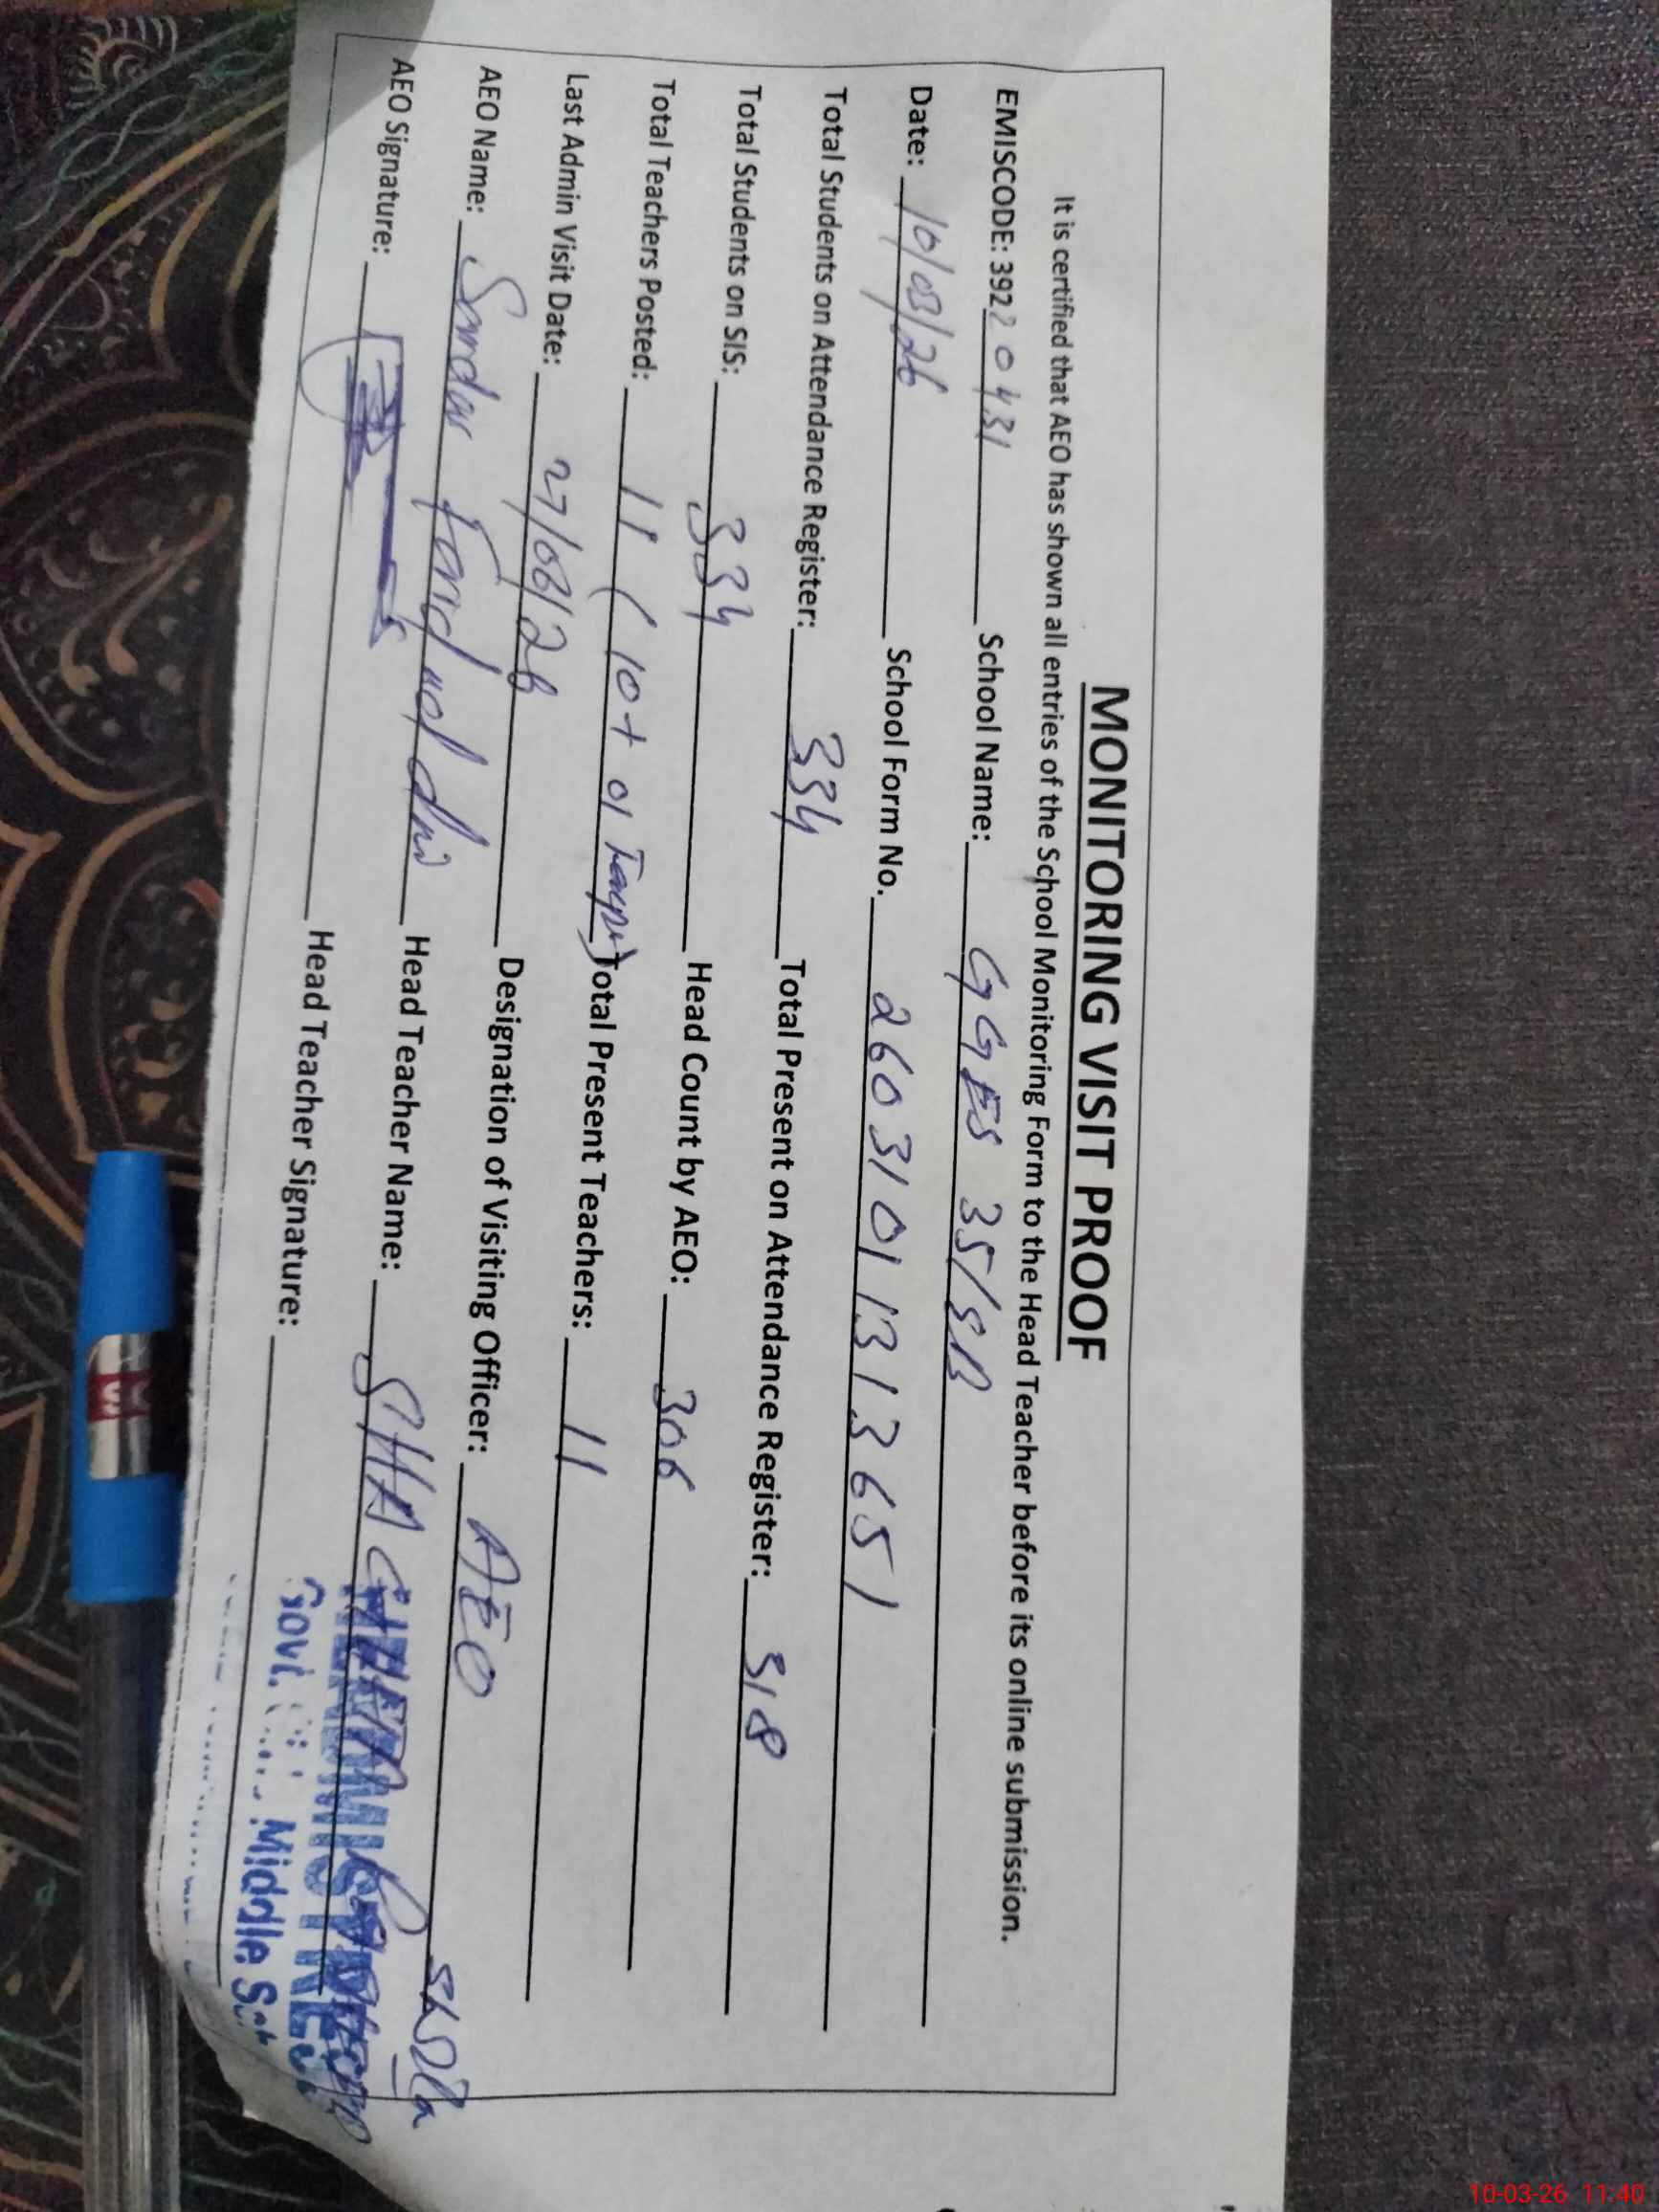 MONITORING VISIT PROOF
It is certified that AEO has shown all entries of the School Monitoring Form to the Head Teacher before its online submission.
EMISCODE: 39220431 School Name: GGES 35/SB
Date: 10/03/26 School Form No. 26031011313651
Total Students on Attendance Register: 334 Total Present on Attendance Register: 318
Total Students on SIS: 334 Head Count by AEO: 306
Total Teachers Posted: 11 (10+01 Temp) Total Present Teachers: 11
Last Admin Visit Date: 27/06/26 Designation of Visiting Officer: AEO
AEO Name: Head Teacher Name:
AEO Signature: Head Teacher Signature:
HEADMISTRESS
Govt. Middle
10-03-26 11:40